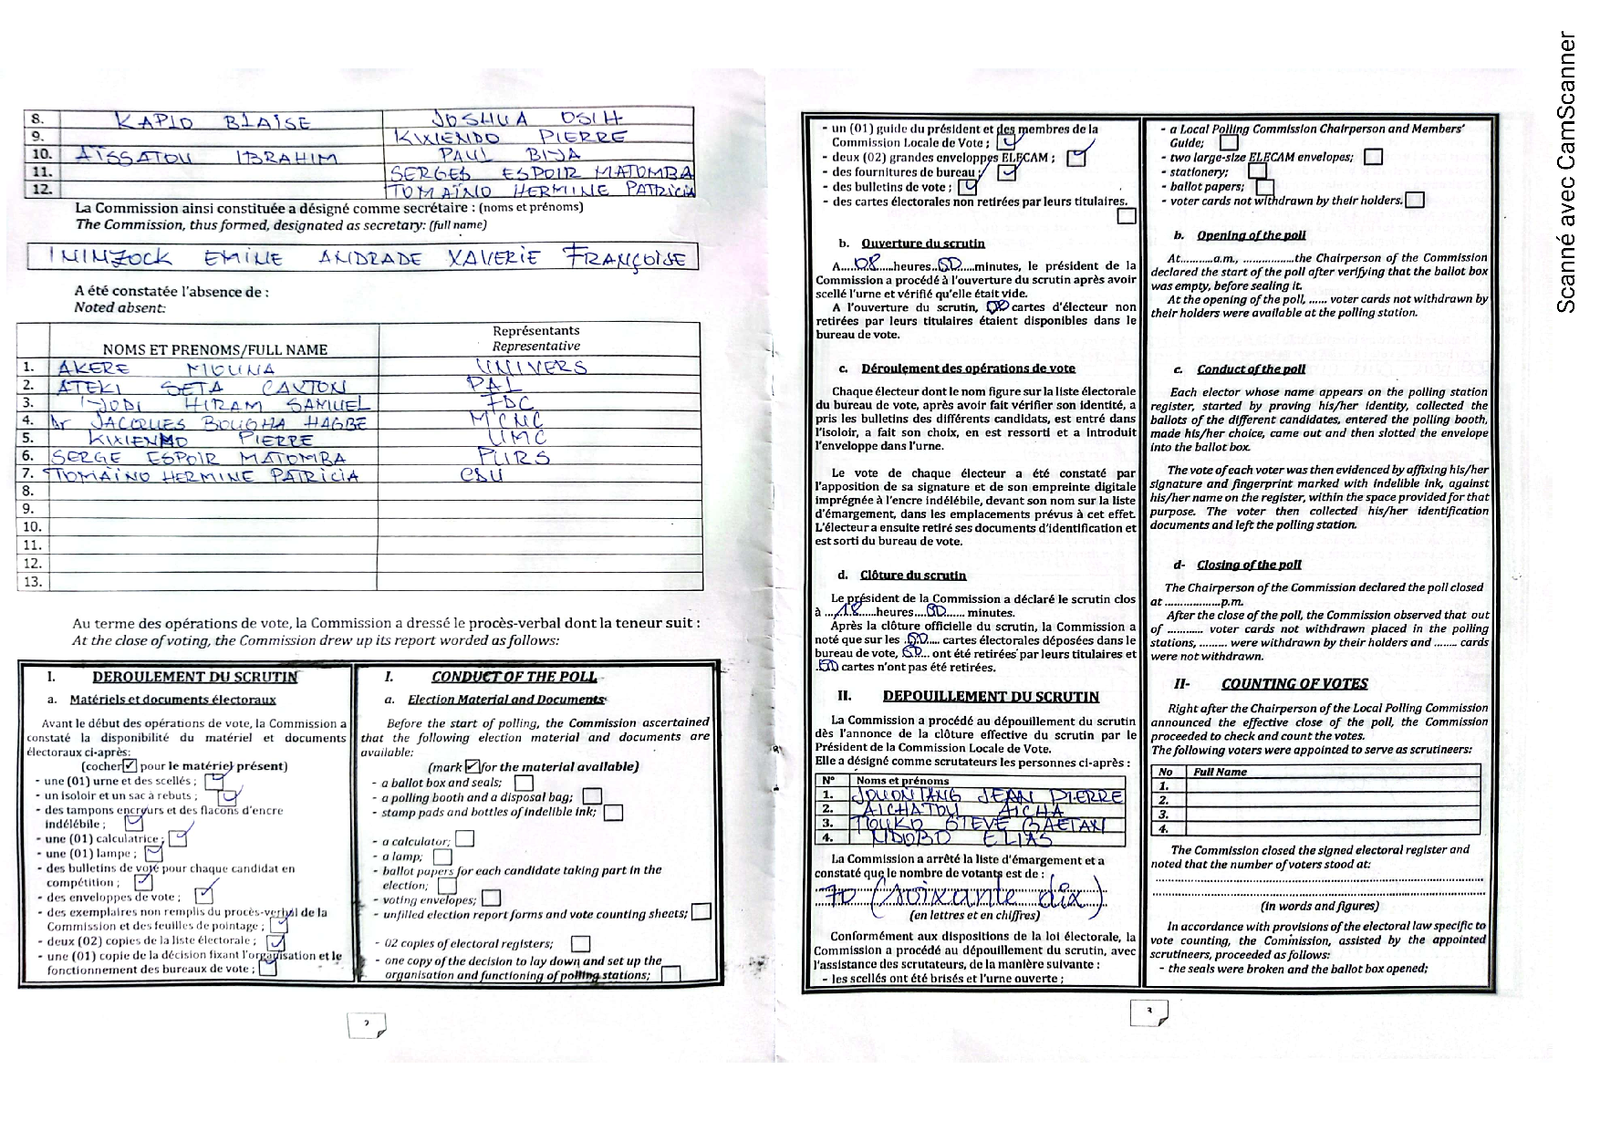 8. KAPLO BLAISE JOSHUA OSIH
9. KIXIENDO PIERRE
10. AÏSSATOU IBRAHIM PAUL BIJA
11. SERGES ESPOIR MATOMBA
12. TOMAÏNO HERMINE PATRICIA
La Commission ainsi constituée a désigné comme secrétaire : (noms et prénoms)
The Commission, thus formed, designated as secretary: (full name)
EMINE ANDRADE XAVERIE FRANÇOISE
A été constatée l'absence de :
Noted absent:
NOMS ET PRENOMS/FULL NAME
Représentants
Representative
1. AKERE MIOUNA UNIVERS
2. ATEKI SETA CAXTON PAL
3. HIRAM SAMUEL FDC
4. Dr JACQUES BOUGHA HAGBE MCNC
5. KIXIENMO PIERRE UMC
6. SERGE ESPOIR MATOMBA PURS
7. TOMAÏNO HERMINE PATRICIA
8.
9.
10.
11.
12.
13.
Au terme des opérations de vote, la Commission a dressé le procès-verbal dont la teneur suit :
At the close of voting, the Commission drew up its report worded as follows:
I. DEROULEMENT DU SCRUTIN
a. Matériels et documents électoraux
Avant le début des opérations de vote, la Commission a
constaté la disponibilité du matériel et documents
électoraux ci-après:
(cocher ☑ pour le matériel présent)
- une (01) urne et des scellés ;
- un isoloir et un sac à rebuts ;
- des tampons encreurs et des flacons d'encre
indélébile ;
- une (01) calculatrice ;
- une (01) lampe ;
- des bulletins de vote pour chaque candidat en
compétition ;
- des enveloppes de vote ;
- des exemplaires non remplis du procès-verbal de la
Commission et des feuilles de pointage ;
- deux (02) copies de la liste électorale ;
- une (01) copie de la décision fixant l'organisation et le
fonctionnement des bureaux de vote ;
I. CONDUCT OF THE POLL
a. Election Material and Documents
Before the start of polling, the Commission ascertained
that the following election material and documents are
available:
(mark ☑ for the material available)
- a ballot box and seals;
- a polling booth and a disposal bag;
- stamp pads and bottles of indelible ink;
- a calculator;
- a lamp;
- ballot papers for each candidate taking part in the
election;
- voting envelopes;
- unfilled election report forms and vote counting sheets;
- 02 copies of electoral registers;
- one copy of the decision to lay down and set up the
organisation and functioning of polling stations;
2
- un (01) guide du président et des membres de la
Commission Locale de Vote ;
- deux (02) grandes enveloppes ELECAM ;
- des fournitures de bureau ;
- des bulletins de vote ;
- des cartes électorales non retirées par leurs titulaires.
b. Ouverture du scrutin
A....08....heures..00....minutes, le président de la
Commission a procédé à l'ouverture du scrutin après avoir
scellé l'urne et vérifié qu'elle était vide.
A l'ouverture du scrutin, 00 cartes d'électeur non
retirées par leurs titulaires étaient disponibles dans le
bureau de vote.
c. Déroulement des opérations de vote
Chaque électeur dont le nom figure sur la liste électorale
du bureau de vote, après avoir fait vérifier son identité, a
pris les bulletins des différents candidats, est entré dans
l'isoloir, a fait son choix, en est ressorti et a introduit
l'enveloppe dans l'urne.
Le vote de chaque électeur a été constaté par
l'apposition de sa signature et de son empreinte digitale
imprégnée à l'encre indélébile, devant son nom sur la liste
d'émargement, dans les emplacements prévus à cet effet.
L'électeur a ensuite retiré ses documents d'identification et
est sorti du bureau de vote.
d. Clôture du scrutin
Le président de la Commission a déclaré le scrutin clos
à ...18....heures...00...... minutes.
Après la clôture officielle du scrutin, la Commission a
noté que sur les .00.... cartes électorales déposées dans le
bureau de vote, 00... ont été retirées par leurs titulaires et
.00 cartes n'ont pas été retirées.
II. DEPOUILLEMENT DU SCRUTIN
La Commission a procédé au dépouillement du scrutin
dès l'annonce de la clôture effective du scrutin par le
Président de la Commission Locale de Vote.
Elle a désigné comme scrutateurs les personnes ci-après :
N° Noms et prénoms
1. JEAN PIERRE
2. AICHATOU AICHA
3. TOUKO STEVE GAETAN
4. NDOBO ELIAS
La Commission a arrêté la liste d'émargement et a
constaté que le nombre de votants est de :
70 (soixante dix)
(en lettres et en chiffres)
Conformément aux dispositions de la loi électorale, la
Commission a procédé au dépouillement du scrutin, avec
l'assistance des scrutateurs, de la manière suivante :
- les scellés ont été brisés et l'urne ouverte ;
- a Local Polling Commission Chairperson and Members'
Guide;
- two large-size ELECAM envelopes;
- stationery;
- ballot papers;
- voter cards not withdrawn by their holders.
b. Opening of the poll
At...........a.m., ..................the Chairperson of the Commission
declared the start of the poll after verifying that the ballot box
was empty, before sealing it.
At the opening of the poll, ...... voter cards not withdrawn by
their holders were available at the polling station.
c. Conduct of the poll
Each elector whose name appears on the polling station
register, started by proving his/her identity, collected the
ballots of the different candidates, entered the polling booth,
made his/her choice, came out and then slotted the envelope
into the ballot box.
The vote of each voter was then evidenced by affixing his/her
signature and fingerprint marked with indelible ink, against
his/her name on the register, within the space provided for that
purpose. The voter then collected his/her identification
documents and left the polling station.
d- Closing of the poll
The Chairperson of the Commission declared the poll closed
at ..................p.m.
After the close of the poll, the Commission observed that out
of ............ voter cards not withdrawn placed in the polling
stations, ......... were withdrawn by their holders and ........ cards
were not withdrawn.
II- COUNTING OF VOTES
Right after the Chairperson of the Local Polling Commission
announced the effective close of the poll, the Commission
proceeded to check and count the votes.
The following voters were appointed to serve as scrutineers:
No Full Name
1.
2.
3.
4.
The Commission closed the signed electoral register and
noted that the number of voters stood at:
(in words and figures)
In accordance with provisions of the electoral law specific to
vote counting, the Commission, assisted by the appointed
scrutineers, proceeded as follows:
- the seals were broken and the ballot box opened;
3
Scanné avec CamScanner